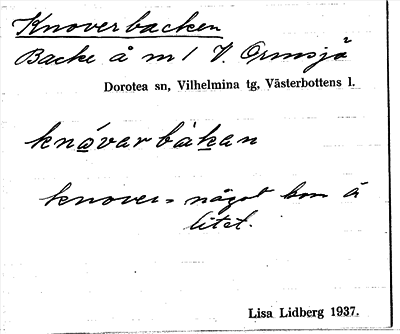 Knoverbacken
Backe å m/ V. Ormsjö
Dorotea sn, Vilhelmina tg, Västerbottens l.
knǻvarbàkan
knover = något som är
litet.
Lisa Lidberg 1937.